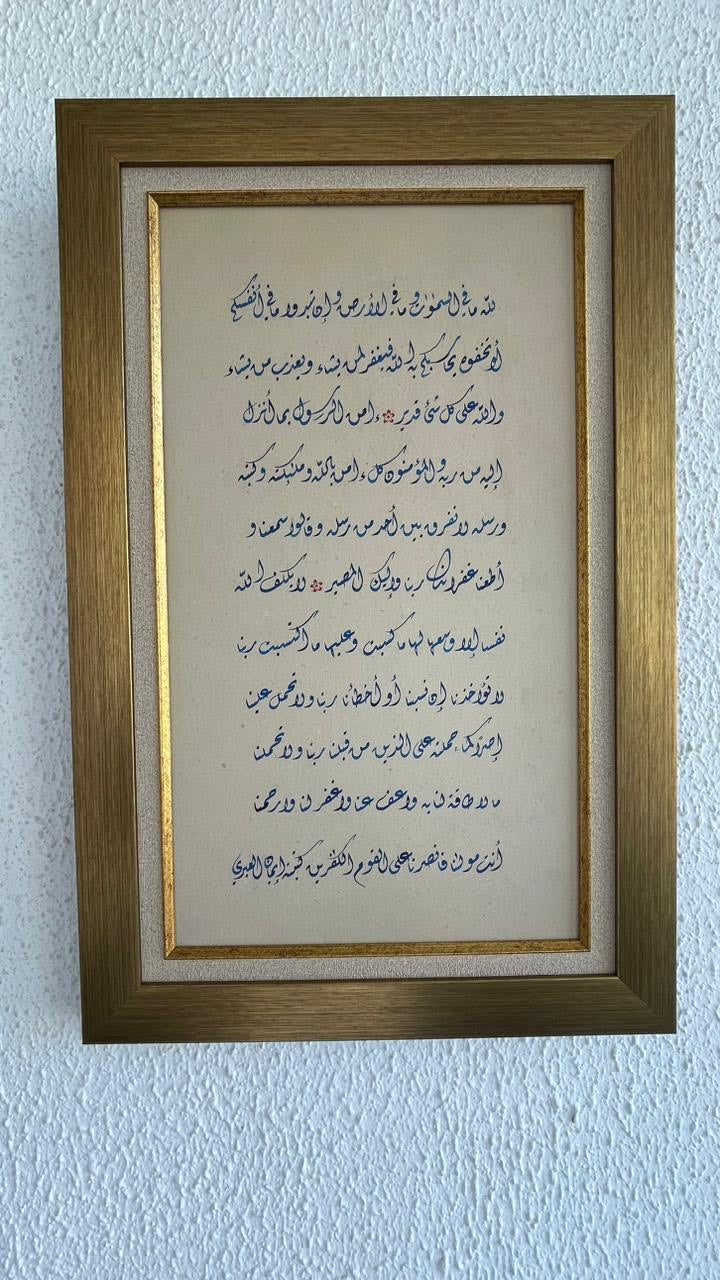 لله ما في السمٰوٰت وما في الأرض وإن تبدوا ما في أنفسكم
أو تخفوه يحاسبكم به الله فيغفر لمن يشاء ويعذب من يشاء
والله على كل شئ قدير ءامن الرسول بما أنزل
إليه من ربه والمؤمنون كل ءامن بالله وملٰئكته وكتبه
ورسله لا نفرق بين أحد من رسله وقالوا سمعنا و
أطعنا غفرانك ربنا وإليك المصير لا يكلف الله
نفسا إلا وسعها لها ما كسبت وعليها ما اكتسبت ربنا
لا تؤاخذنا إن نسينا أو أخطأنا ربنا ولا تحمل علينا
إصرًا كما حملته على الذين من قبلنا ربنا ولا تحملنا
ما لا طاقة لنا به واعف عنا واغفر لنا وارحمنا
أنت مولٰنا فانصرنا على القوم الكٰفرين كتبته إيمان العبري